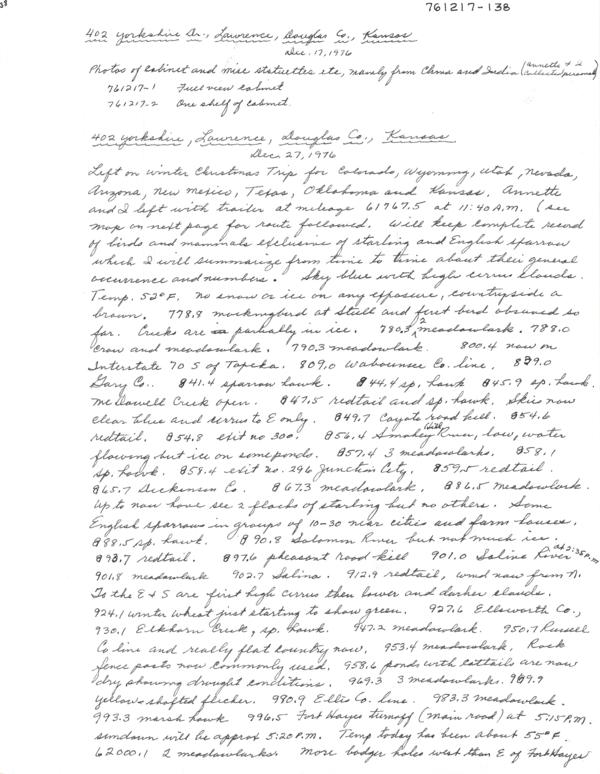 38
761217-138
402 Yorkshire Dr., Lawrence, Douglas Co., Kansas
Dec. 17, 1976
Photos of cabinet and misc statuettes etc, mainly from China and India (Annette & I collected personally)
761217-1 Full view cabinet
761217-2 One shelf of cabinet.
402 Yorkshire, Lawrence, Douglas Co., Kansas
Dec. 27, 1976
Left on winter Christmas Trip for Colorado, Wyoming, Utah, Nevada,
Arizona, New Mexico, Texas, Oklahoma and Kansas. Annette
and I left with trailer at mileage 61767.5 at 11:40 A.M. (see
map on next page for route followed. Will keep complete record
of birds and mammals exclusive of starling and English sparrow
which I will summarize from time to time about their general
occurrence and numbers. Sky blue with high cirrus clouds.
Temp. 52°F, no snow or ice on any exposure, countryside a
brown. 778.8 mockingbird at Stull and first bird observed so
far. Creeks are partially in ice. 780.3 2 meadowlark. 788.0
crow and meadowlark. 790.3 meadowlark. 800.4 now on
Interstate 70 S of Topeka. 809.0 Wabaunsee Co. line, 839.0
Geary Co.. 841.4 sparrow hawk. 844.4 sp. hawk 845.9 sp. hawk.
McDowell Creek open. 847.5 redtail and sp. hawk. Skies now
clear blue and cirrus to E only. 849.7 Coyote road kill. 854.6
redtail. 854.8 exit no 300. 856.4 Smokey Hill River, low, water
flowing but ice on some ponds. 857.4 3 meadowlarks. 858.1
sp. hawk. 858.4 exit no. 296 Junction City. 859.5 redtail.
865.7 Dickinson Co. 867.3 meadowlark. 886.5 meadowlark.
Up to now have see 2 flocks of starling but no others. Some
English sparrows in groups of 10-30 near cities and farm houses.
888.5 sp. hawk. 890.8 Solomon River but not much ice.
893.7 redtail. 897.6 pheasant road kill 901.0 Saline River at 2:35 P.M.
901.8 meadowlark 902.7 Salina. 912.9 redtail, wind now from N.
To the E & S are first high cirrus then lower and darker clouds.
924.1 winter wheat just starting to show green. 927.6 Ellsworth Co.,
930.1 Elkhorn Creek, sp. hawk. 947.2 meadowlark. 950.7 Russell
Co line and really flat country now. 953.4 meadowlark. Rock
fence posts now commonly used. 958.6 ponds with cattails are now
dry showing drought conditions. 969.3 3 meadowlarks. 969.9
yellow shafted flicker. 980.9 Ellis Co. line. 983.3 meadowlark.
993.3 marsh hawk 996.5 Fort Hayes turnoff (main road) at 5:15 P.M.
sundown will be approx 5:20 P.M. Temp today has been about 55°F.
62000.1 2 meadowlarks. More badger holes west than E of Fort Hayes